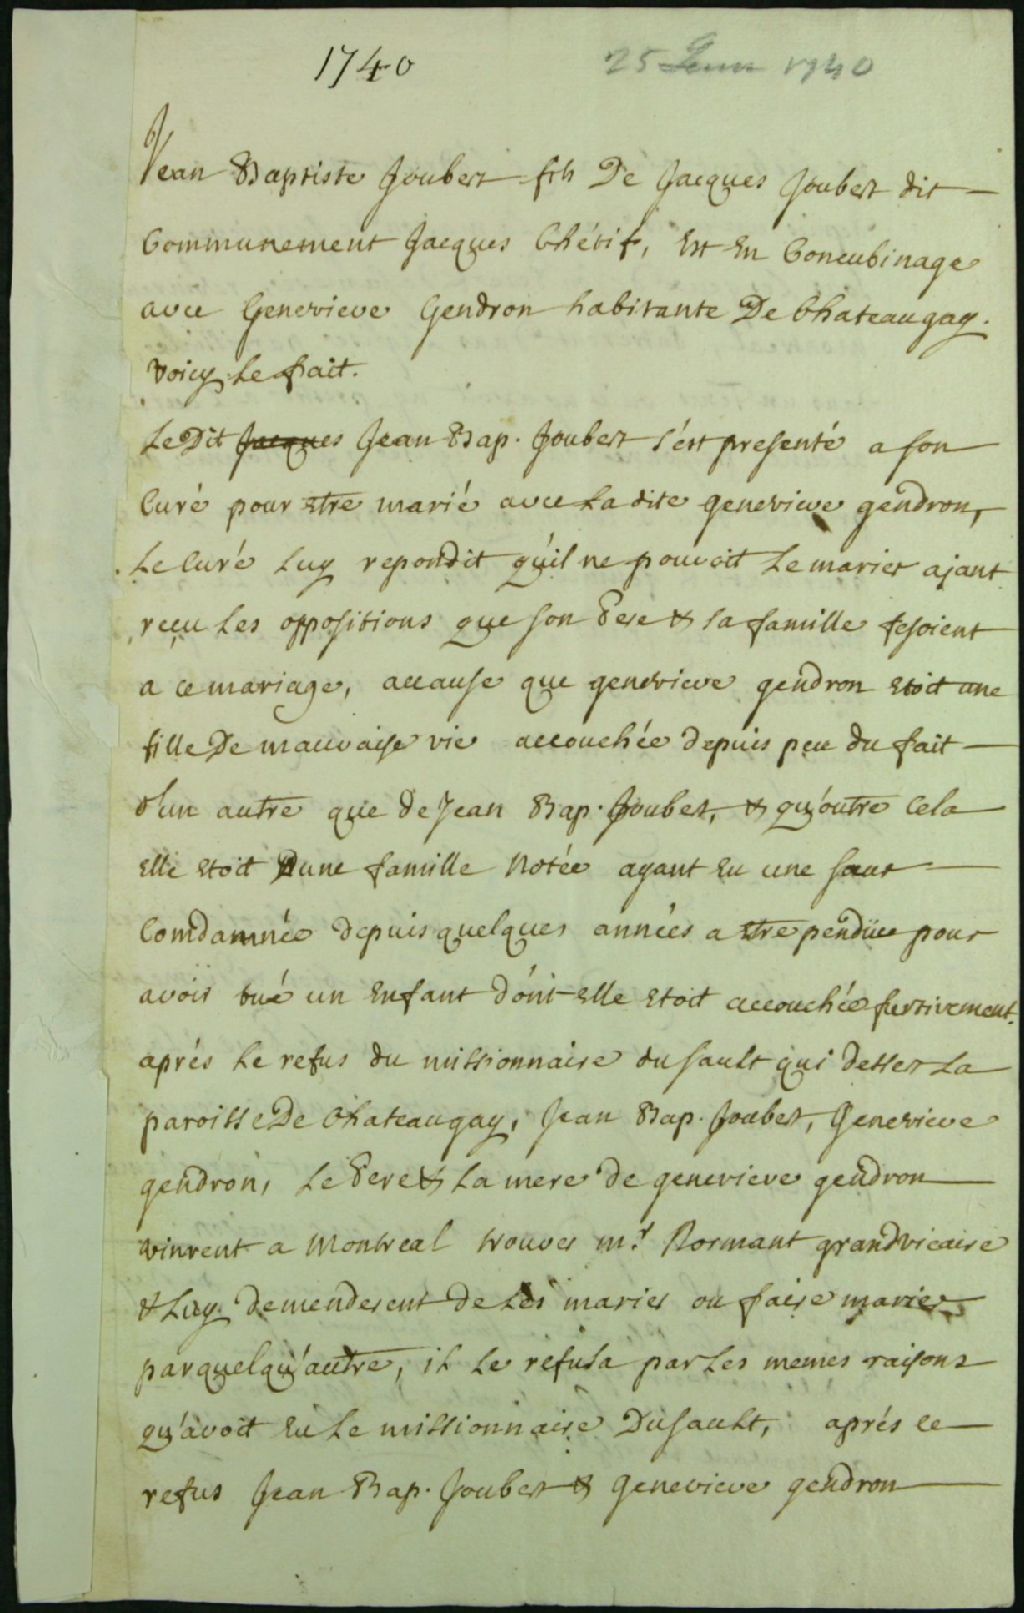 1740
25 1740
Jean Baptiste Joubert fils De Jacques Joubert dit
Communement Jacques Chétif, Est En Concubinage
avec Genevieve Gendron habitante De Chateaugay.
Voicy Le fait.
Le Dit Jacques Jean Bap. Joubert s'est presenté a son
Curé pour Etre marié avec La dite genevieve gendron,
Le Curé Luy repondit qu'il ne pouvoit Le marier ajant
reçu Les oppositions que son Pere & sa famille fesoient
a ce mariage, accause que genevieve gendron Etoit une
fille De mauvaise vie accouchée depuis peu du fait
d'un autre que de Jean Bap. Joubert, & qu'outre Cela
Elle Etoit D'une famille Notée ayant Eu une sœur
Comdamnée depuis quelques années a Etre penduë pour
avoir tué un Enfant dont Elle Etoit accouchée furtivement.
aprés Le refus du missionnaire du sault qui dessert La
paroisse De Chateaugay, Jean Bap. Joubert, Genevieve
gendron, Le Pere & La mere de genevieve gendron
vinrent a Montreal trouver mr. Normant grandvicaire
& Luy demenderent de Les marier ou faire marier
par quelqu'autre, il Le refusa par Les memes raisons
qu'avoit Eu Le missionnaire Du Sault, aprés ce
refus Jean Bap. Joubert & Genevieve gendron